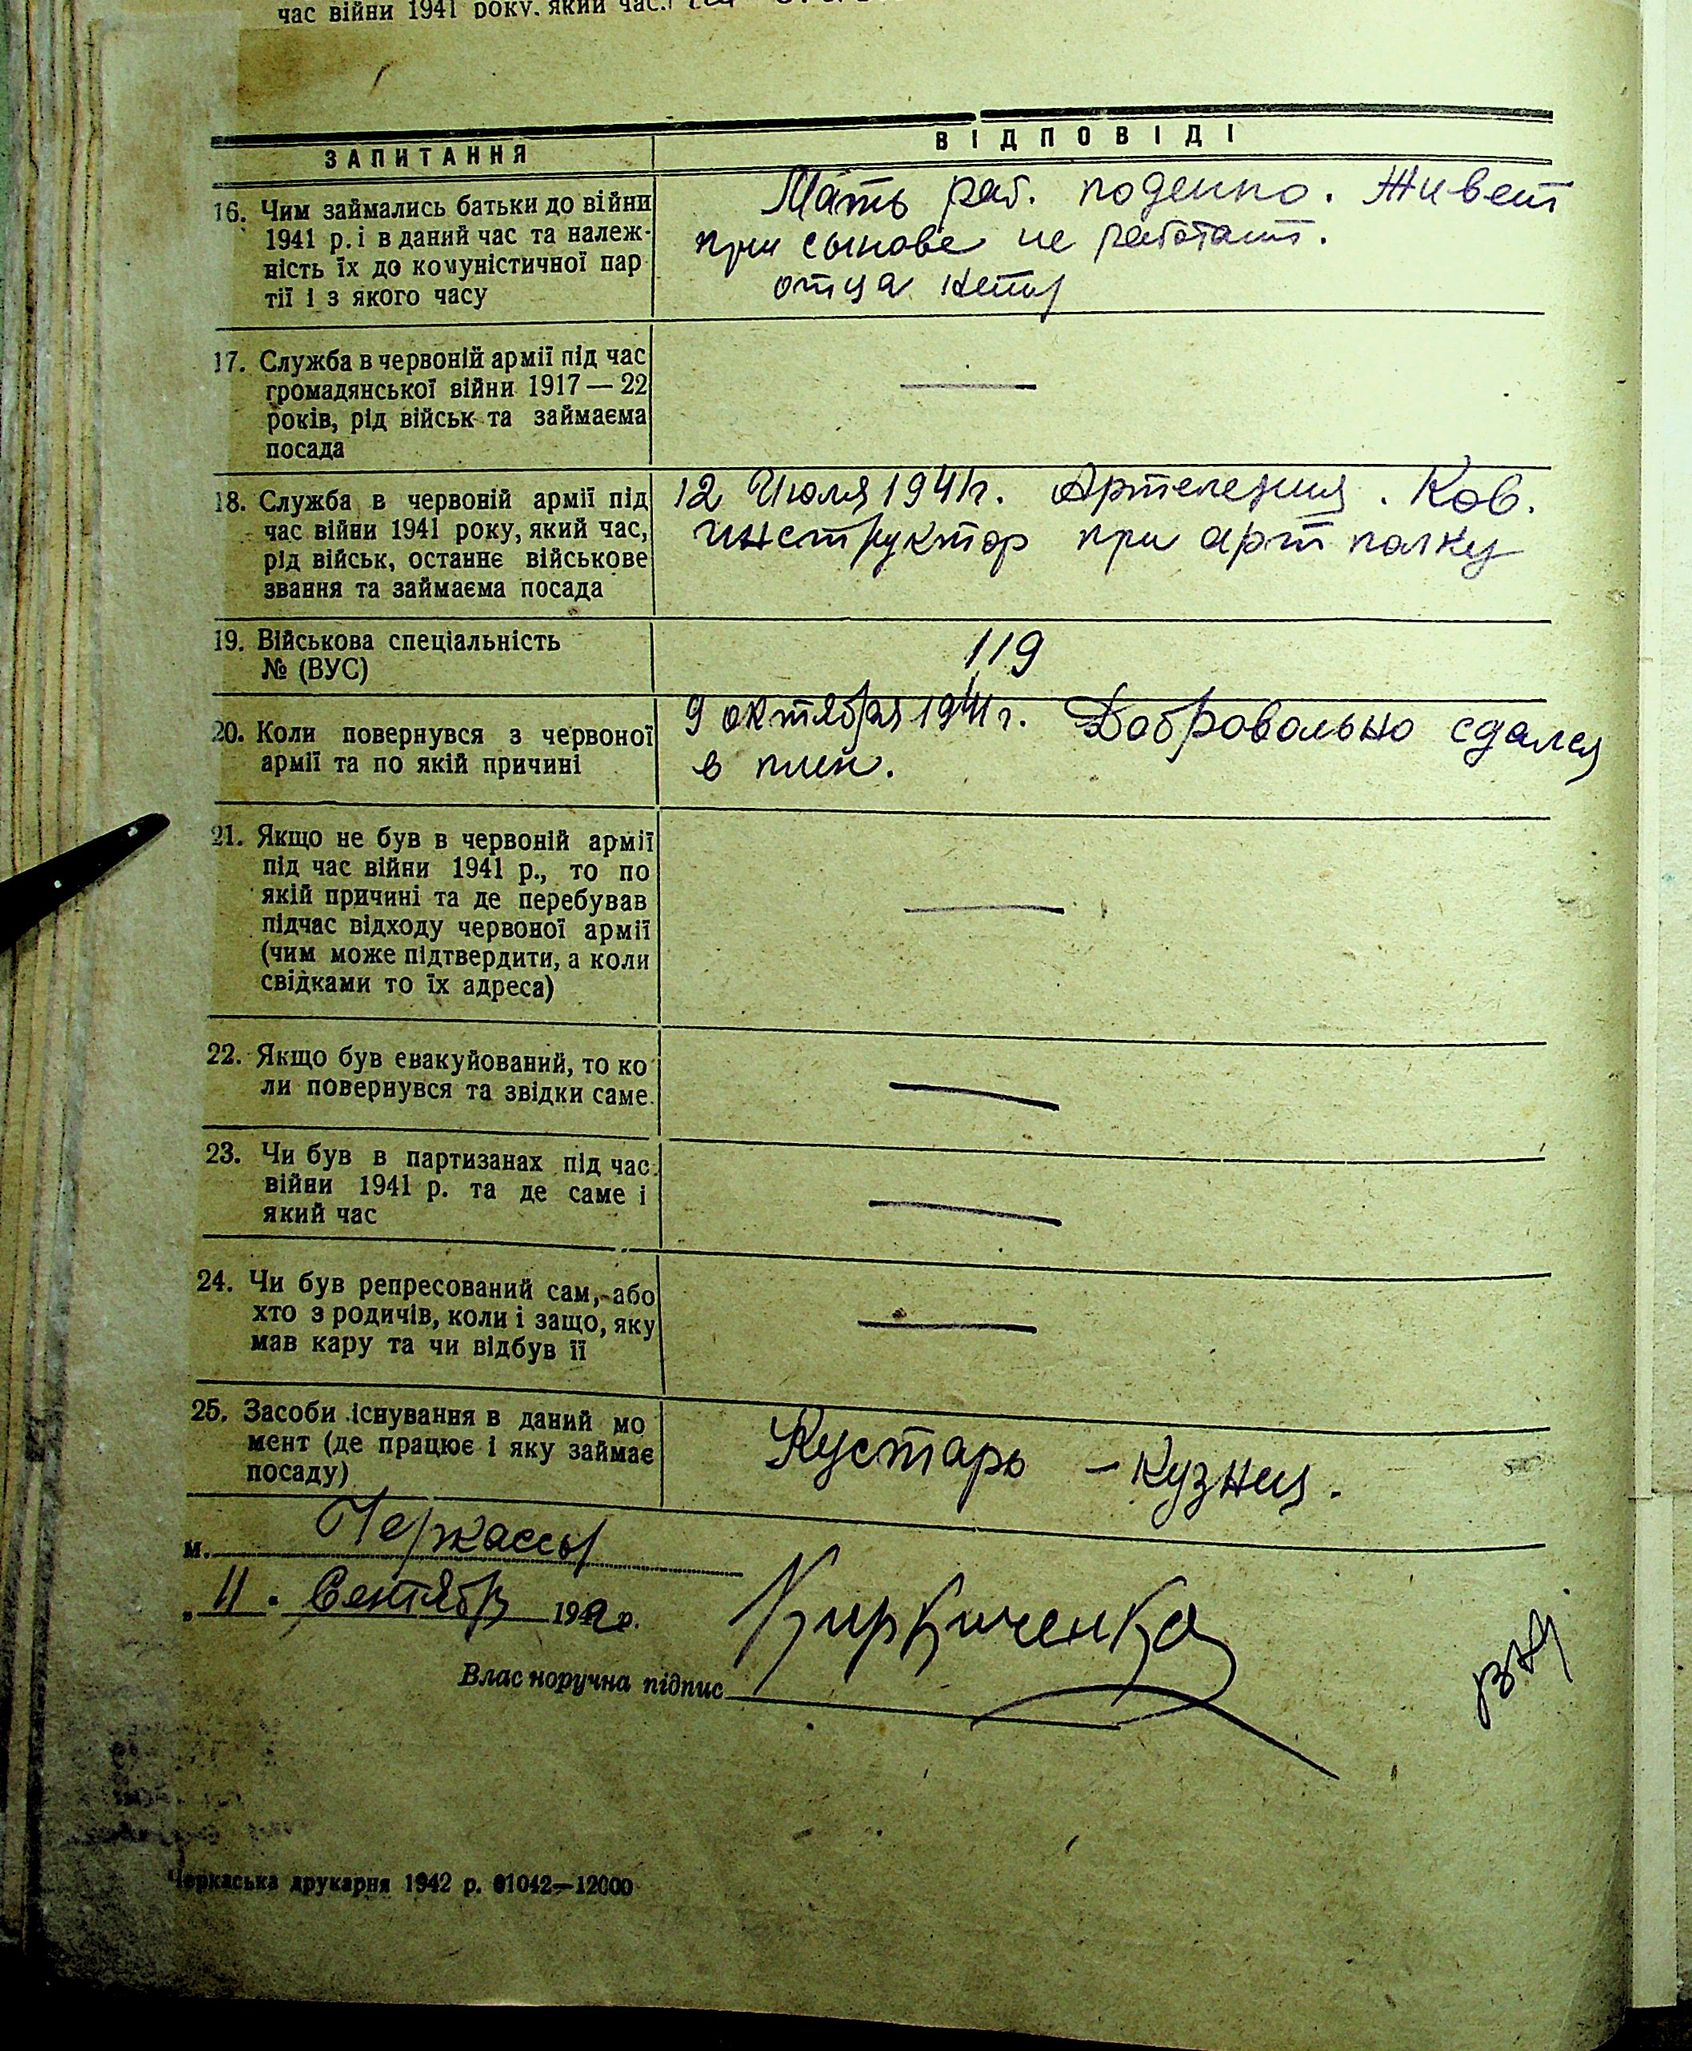 час війни 1941 року, який час,
ЗАПИТАННЯ
ВІДПОВІДІ
16. Чим займались батьки до війни
1941 р. і в даний час та належ-
ність їх до комуністичної пар
тії і з якого часу
Мать раб. поденно. Живет
при сынове не работает.
отца нету
17. Служба в червоній армії під час
громадянської війни 1917 — 22
років, рід військ та займаєма
посада
—
18. Служба в червоній армії під
час війни 1941 року, який час,
рід військ, останнє військове
звання та займаєма посада
12 Июля 1941 г. Артелерия. Ков.
инструктор при арт полку
19. Військова спеціальність
№ (ВУС)
119
20. Коли повернувся з червоної
армії та по якій причині
9 октября 1941 г. Добровольно сдался
в плен.
21. Якщо не був в червоній армії
під час війни 1941 р., то по
якій причині та де перебував
підчас відходу червоної армії
(чим може підтвердити, а коли
свідками то їх адреса)
—
22. Якщо був евакуйований, то ко
ли повернувся та звідки саме.
—
23. Чи був в партизанах під час
війни 1941 р. та де саме і
який час
—
24. Чи був репресований сам, або
хто з родичів, коли і защо, яку
мав кару та чи відбув її
—
25. Засоби існування в даний мо
мент (де працює і яку займає
посаду)
Кустарь – Кузнец.
м. Черкассы
„ 11 . Сентябр 1942 р.
Власноручна підпис Кириченко
Черкаська друкарня 1942 р. 01042—12000